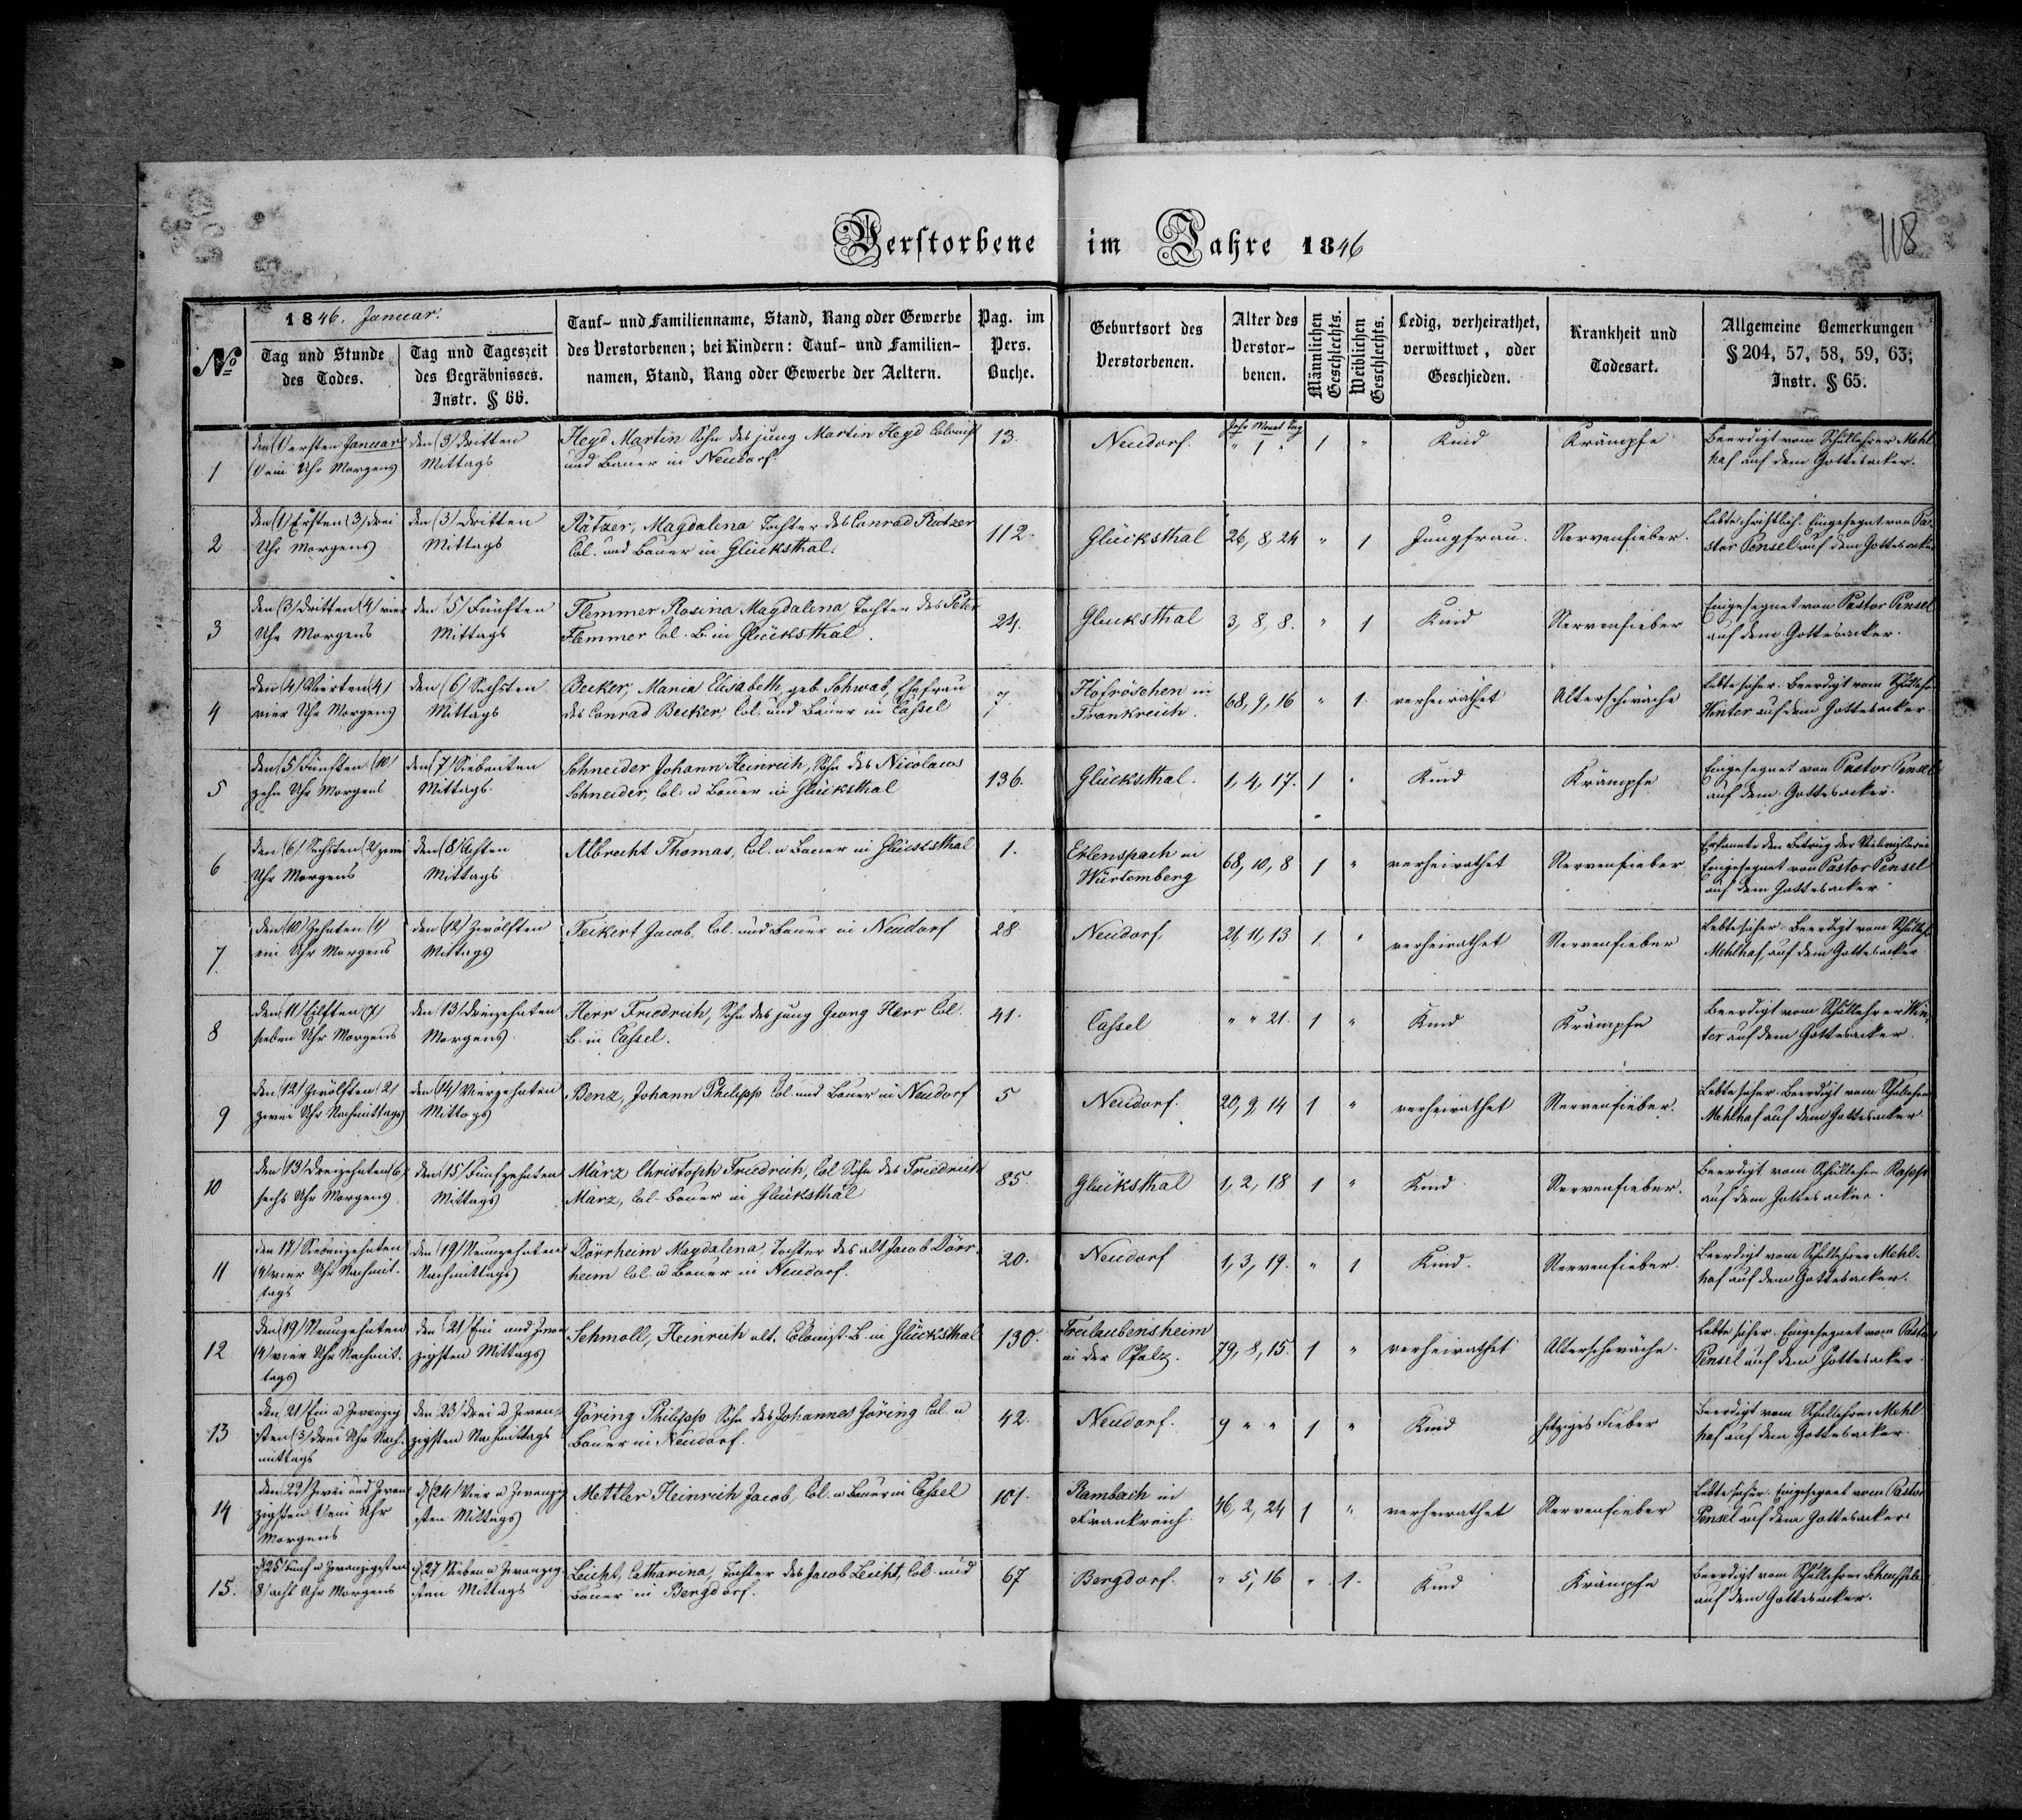 Verstorbene im Jahre 1846
118
No
1846. Januar.
Tag und Stunde des Todes.
Tag und Tageszeit des Begräbnisses. Instr. § 66.
Tauf- und Familienname, Stand, Rang oder Gewerbe
des Verstorbenen; bei Kindern: Tauf- und Familien-
namen, Stand, Rang oder Gewerbe der Aeltern.
Pag. im Pers. Buche.
Geburtsort des Verstorbenen.
Alter des Verstor-benen.
Männlichen Geschlechts.
Weiblichen Geschlechts.
Ledig, verheirathet, verwittwet, oder Geschieden.
Krankheit und Todesart.
Allgemeine Bemerkungen § 204, 57, 58, 59, 63; Instr. § 65.
Jahr Monat Tag
1
den (1) ersten Januar
(1) ein Uhr Morgens
den (3) dritten
Mittags
Heyd Martin Sohn des jung Martin Heyd Colonist
und Bauer in Neudorf.
13.
Neudorf.
" 1 "
1
"
Kind
Krämpfe
Beerdigt vom Schullehrer Mehl
haf auf dem Gottesacker.
2
den (1) Ersten (3) drei
Uhr Morgens
den (3) dritten
Mittags
Rätzer, Magdalena Tochter des Conrad Raetzer
Col. und Bauer in Glücksthal.
112.
Glücksthal
26, 8, 24
"
1
Jungfrau.
Nervenfieber.
Lebte christlich. Eingesegnet von Pa-
stor Pensel auf dem Gottesacker
3
den (3) dritten (4) vier
Uhr Morgens
den (5) Fünften
Mittags
Flemmer Rosina Magdalena Tochter des Peter
Flemmer Col. B. in Glücksthal.
24.
Glucksthal
3, 8, 8.
"
1
Kind
Nervenfieber
Eingesegnet von Pastor Pensel
auf dem Gottesacker.
4
den (4) Vierten (4)
vier Uhr Morgens
den (6) Sechsten
Mittags
Becker, Maria Elisabeth, geb. Schwab, Ehefrau
des Conrad Becker, Col. und Bauer in Cassel
7.
Hofröschen in
Frankreich.
68, 9, 16
"
1.
verheirathet
Altersschwäche
Beerdigt vom Schulleh
Winter auf dem Gottesacker
5
den (5) Fünften (10)
zehn Uhr Morgens
den (7) Siebenten
Mittags.
Schneider Johann Heinrich, Sohn des Nicolaus
Schneider, Col. u Bauer in Glücksthal
136.
Glücksthal.
1, 4, 17.
1
"
Kind
Krämpfe
Eingesegnet von Pastor Pensel
auf dem Gottesacker.
6
den (6) Sechsten (2) zwei
Uhr Morgens
den (8) Achten
Mittags
Albrecht Thomas, Col. u Bauer in Glücksthal
1.
Erlenspach in
Würtemberg
68, 10, 8
1
"
verheirathet
Nervenfieber
Erkannte den Betrug der
Eingesegnet von Pastor Pensel
auf dem Gottesacker
7
den (10) Zehnten (1)
ein Uhr Morgens
den (12) Zwölften
Mittags
Feikert Jacob, Col. und Bauer in Neudorf
28
Neudorf.
21, 11, 13
1
"
verheirathet
Nervenfieber
Beerdigt vom Schulleh
Mehlhaf, auf dem Gottesacker
8
den (11) Eilften (7)
sieben Uhr Morgens
den (13) dreizehnten
Morgens
Herr Friedrich, Sohn des jung Georg Herr Col.
B. in Cassel.
41.
Cassel
" " 21.
1
"
Kind
Krämpfe
Beerdigt vom Schullehrer Win
ter auf dem Gottesacker.
9
den (12) Zwölften (2)
zwei Uhr Nachmittags
den (14) Vierzehnten
Mittags
Benz, Johann Philipp Col. und Bauer in Neudorf
5
Neudorf.
20, 9, 14
1
"
verheirathet
Nervenfieber.
Beerdigt vom Schullehrer
Mehlhaf auf dem Gottesacker
10
den (13) dreizehnten (6)
sechs Uhr Morgens
den (15) Fünfzehnten
Mittags
März Christoph Friedrich, Col. Sohn des Friedrich
März, Col. Bauer in Glücksthal
85.
Glücksthal
1, 2, 18
1
"
Kind
Nervenfieber.
Beerdigt vom Schullehrer
auf dem Gottesacker.
11
den 17) Siebenzehnten
(4) vier Uhr Nachmit-
tags
den (19) Neunzehnten
Nachmittags
Dörrheim Magdalena, Tochter des alt Jacob Dörr-
heim Col. u Bauer in Neudorf.
20.
Neudorf
1, 3, 19.
"
1
Kind.
Nervenfieber.
Beerdigt vom Schullehrer Mehl-
haf auf dem Gottesacker.
12
den (19) Neunzehnten
(4) vier Uhr Nachmit-
tags
den (21) Ein und Zwan
zigsten Mittags
Schmoll, Heinrich alt, Colonist. B. in Glücksthal
130.
Freilaubensheim
in der Pfalz.
79, 8, 15.
1
"
verheirathet
Altersschwäche.
Eingesegnet vom Pastor
Pensel auf dem Gottesacker.
13
den 21) Ein u Zwanzig
sten (3) drei Uhr Nach-
mittags
den 23) drei u Zwan-
zigsten Nachmittags
Göring Philipp Sohn des Johannes Göring Col. u
Bauer in Neudorf.
42.
Neudorf.
9 " "
1
"
Kind
hitziges Fieber
Beerdigt vom Schullehrer Mehl
haf auf dem Gottesacker.
14
den 22) Zwei und Zwan
zigsten 1) ein Uhr
Morgens
d) (24) Vier u Zwanzig
sten Mittags
Mettler Heinrich Jacob, Col. u Bauer in Cassel
101.
Rambach in
Frankreich
46, 2, 24
1
"
verheirathet
Nervenfieber
Eingesegnet vom Pastor
Pensel auf dem Gottesacker
15.
d) 25) Fünf u Zwanzigsten
8) acht Uhr Morgens
d) 27) Sieben u Zwanzig-
sten Mittags
Leicht, Catharina, Tochter des Jacob Leicht, Col. und
Bauer in Bergdorf.
67
Bergdorf.
" 5, 16
"
1.
Kind
Krämpfe
Beerdigt vom Schullehrer
auf dem Gottesacker.